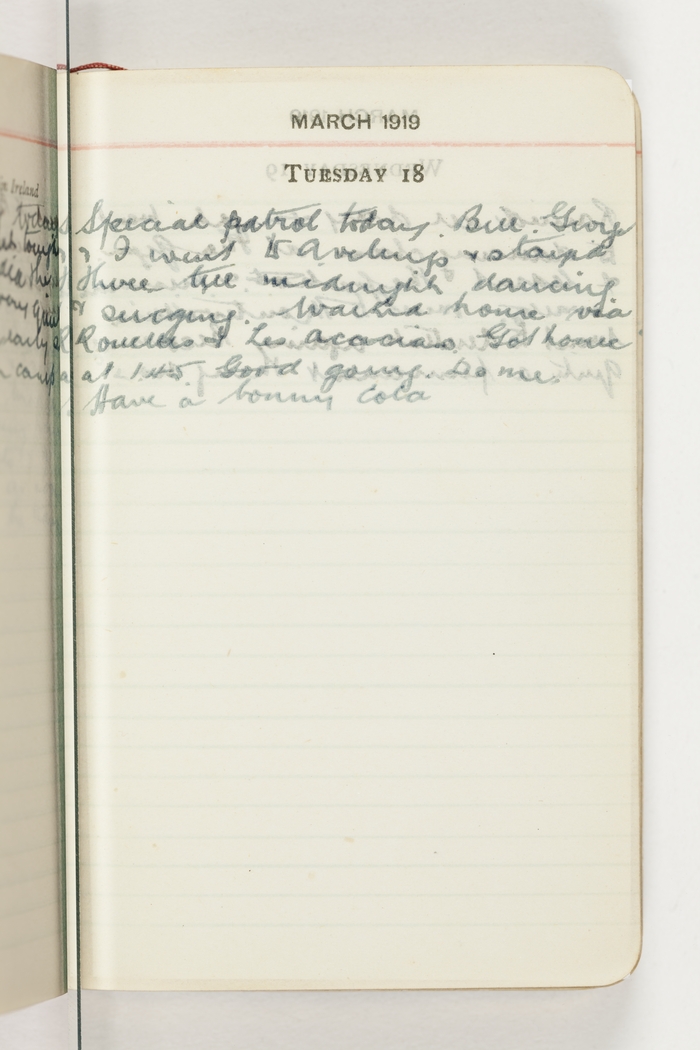 MARCH 1919
TUESDAY 18
Special patrol today. Bill. George
& I went to & stayed
there till midnight dancing
& singing. Walked home via
& Les Acacias. Got home
at 1.45 Good going. Do me.
Have a bonny cold
in Ireland
today